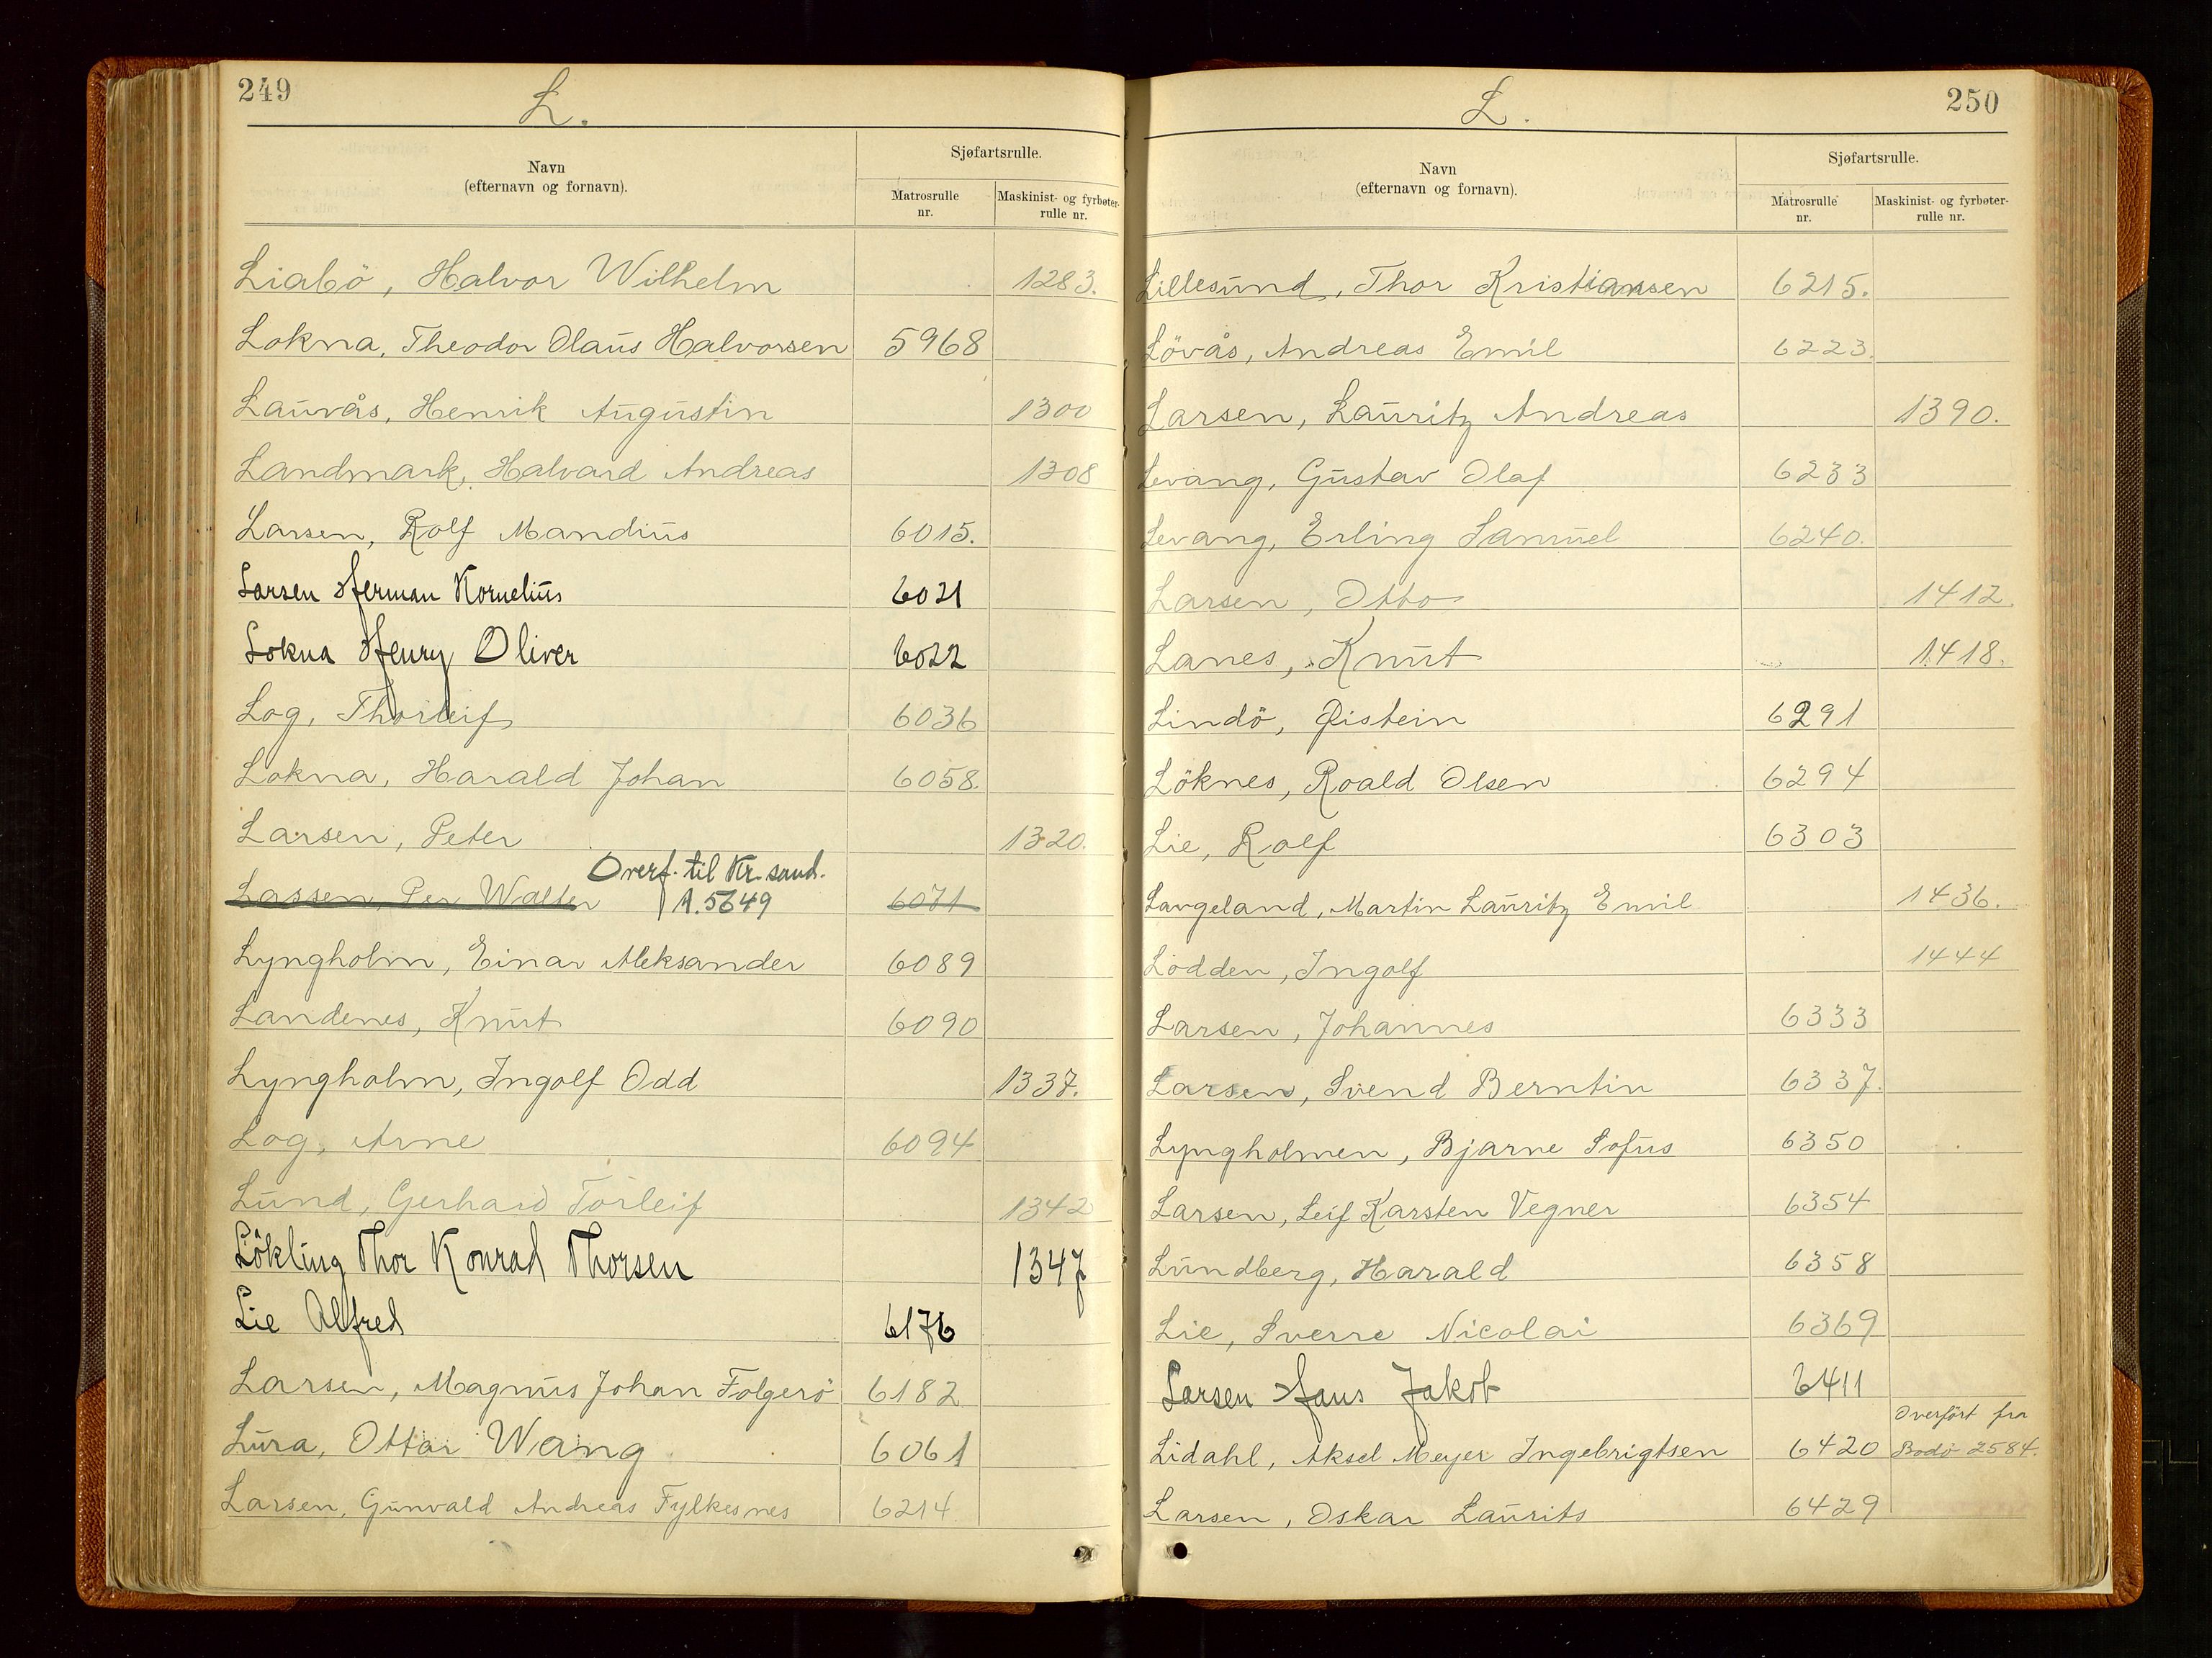 249
L.
Navn
(efternavn og fornavn).
Sjøfartsrulle.
Matrosrulle
nr.
Maskinist- og fyrbøter-
rulle nr.
Liabö, Halvor Wilhelm 1283.
Lokna, Theodor Olaus Halvorsen 5968
Lauvås, Henrik Augustin 1300
Landmark, Halvard Andreas 1308
Larsen, Rolf Mandius 6015.
Larsen Herman Kornelius 6021
Lokna Henry Oliver 6022
Log, Thorleif 6036
Lokna, Harald Johan 6058.
Larsen, Peter 1320.
Overf. til Kr. sand.
Lassen, Per Walter A. 5649 6071
Lyngholm, Einar Aleksander 6089
Landenes, Knut 6090
Lyngholm, Ingolf Odd 1337.
Log, Arne 6094
Lund, Gerhard Torleif 1342
Lökling Thor Konrad Thorsen 1347
Lie Alfred 6176
Larsen, Magnus Johan Folgerö 6182
Lura, Ottar Wang 6061
Larsen, Gunvald Andreas Fylkesnes 6214
250
L.
Navn
(efternavn og fornavn).
Sjøfartsrulle.
Matrosrulle
nr.
Maskinist- og fyrbøter-
rulle nr.
Lillesund, Thor Kristiansen 6215.
Lövås, Andreas Emil 6223.
Larsen, Lauritz Andreas 1390.
Levang, Gustav Olaf 6233
Levang, Erling Samuel 6240.
Larsen, Otto 1412.
Lanes, Knut 1418.
Lindö, Øistein 6291
Löknes, Roald Olsen 6294
Lie, Rolf 6303
Langeland, Martin Lauritz Emil 1436.
Lodden, Ingolf 1444
Larsen, Johannes 6333
Larsen, Svend Berntin 6337.
Lyngholmen, Bjarne Sofus 6350
Larsen, Leif Karsten Vegner 6354
Lundberg, Harald 6358
Lie, Sverre Nicolai 6369
Larsen Hans Jakob 6411
Overfört fra
Lidahl, Aksel Meyer Ingebrigtsen 6420 Bodö 2584.
Larsen, Oskar Laurits 6429